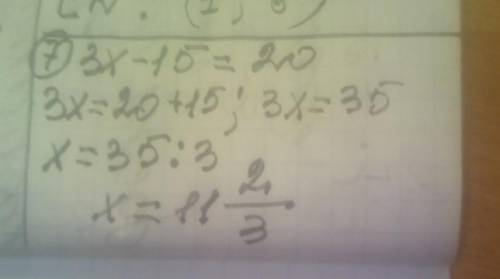 (7) 3x-15=20
3x=20+15; 3x=35
x=35:3
x=11 2/3